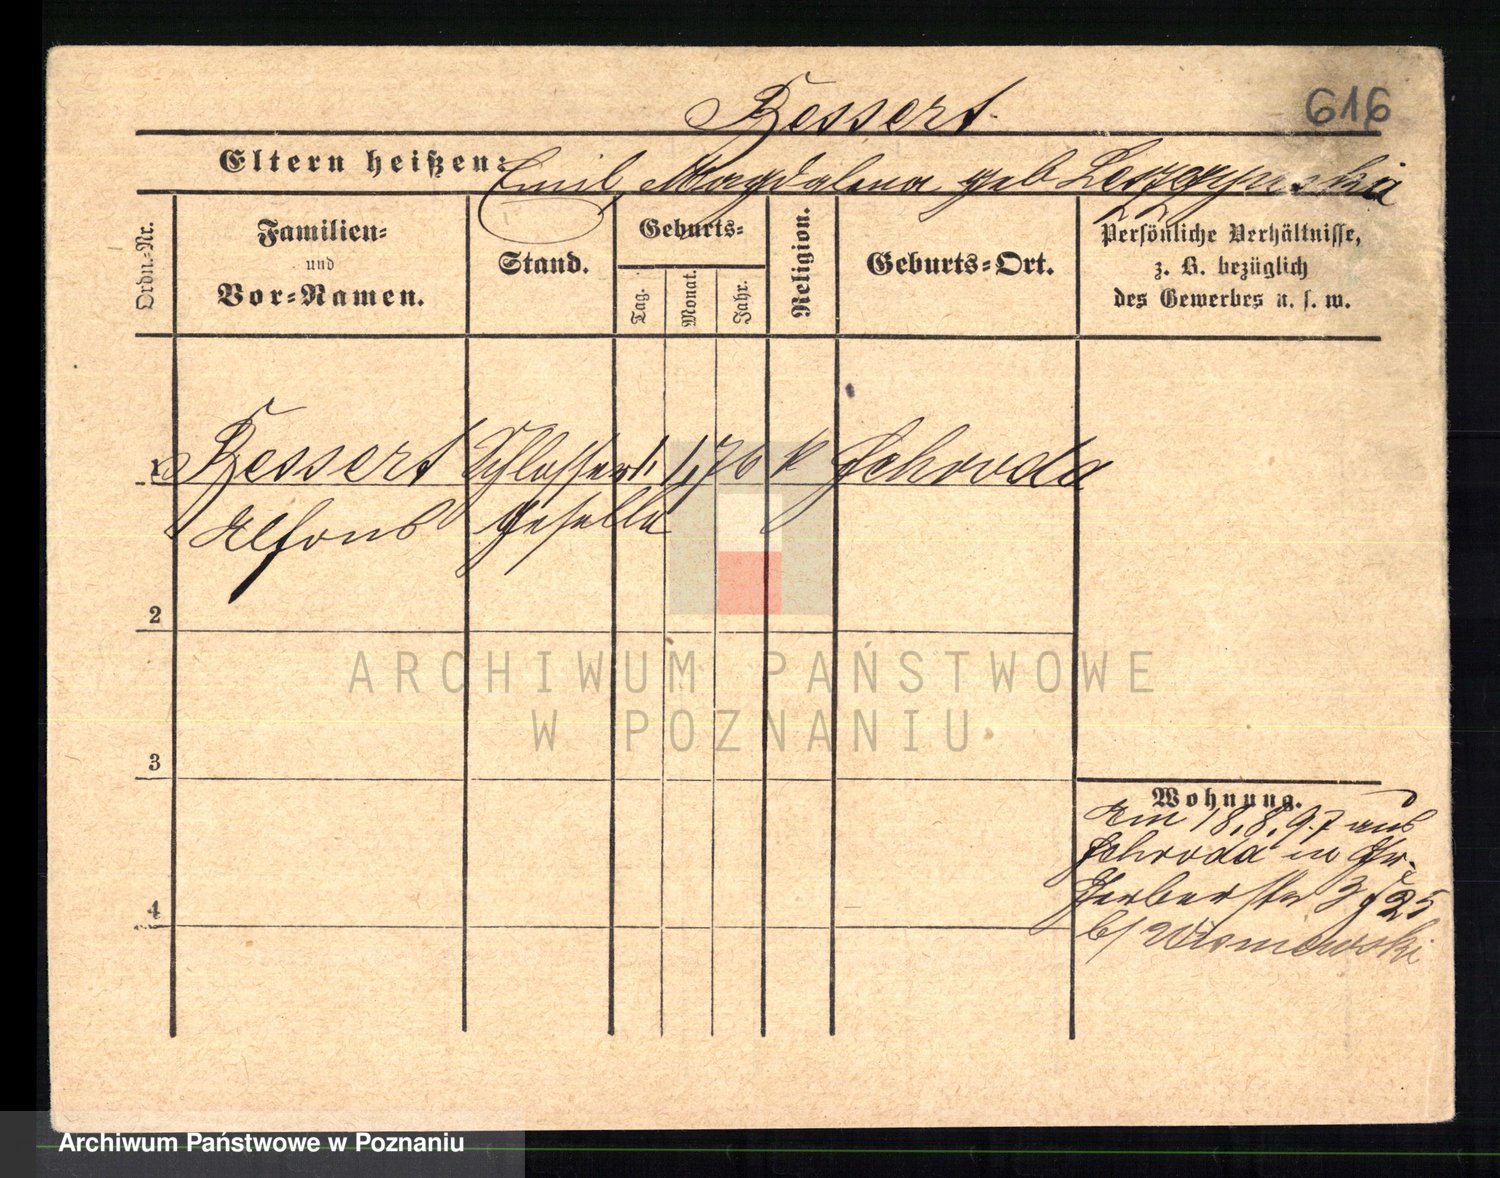 616
Bessert
Eltern heißen: Emil, Magdalena geb
Ordn.-Nr.
Familien-
und
Vor-Namen.
Stand.
Geburts-
Tag.
Monat.
Jahr.
Religion.
Geburts-Ort.
Persönliche Verhältnisse,
z. B. bezüglich
des Gewerbes u. s. w.
1 Bessert Schlosser 1. 1. 76 k Schroda
Alfons geselle
2
3
4
Wohnung.
Am 18.8.97 aus
Schroda in Gr.
Gerberstr 25
b/ Wisniewski
ARCHIWUM PAŃSTWOWE
W POZNANIU
Archiwum Państwowe w Poznaniu